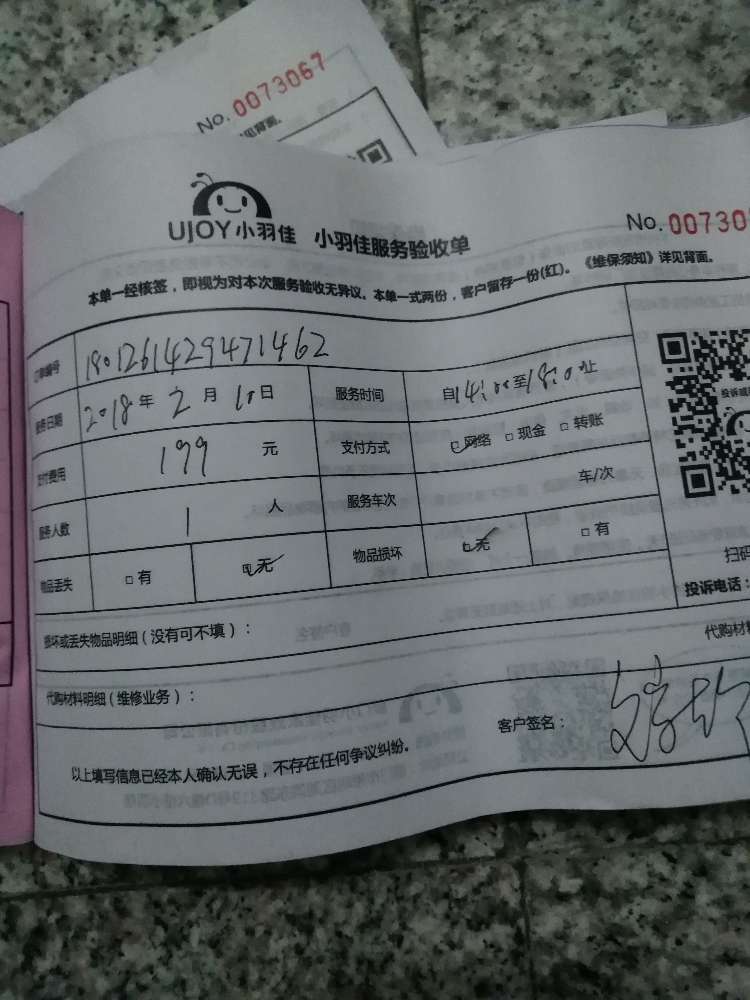 No. 0073067
见背面。
UJOY小羽佳 小羽佳服务验收单
No. 007306
本单一经核签，即视为对本次服务验收无异议。本单一式两份，客户留存一份(红)。《维保须知》详见背面。
订单编号 1801261429471462
服务日期 2018 年 2 月 10 日 服务时间 自14:00至18:00止
支付费用 199 元 支付方式 ☑网络 □现金 □转账
服务人数 1 人 服务车次 车/次
物品丢失 □有 ☑无 物品损坏 ☑无 □有
扫码
投诉电话：
损坏或丢失物品明细（没有可不填）：
代购材
代购材料明细（维修业务）：
客户签名：
以上填写信息已经本人确认无误，不存在任何争议纠纷。